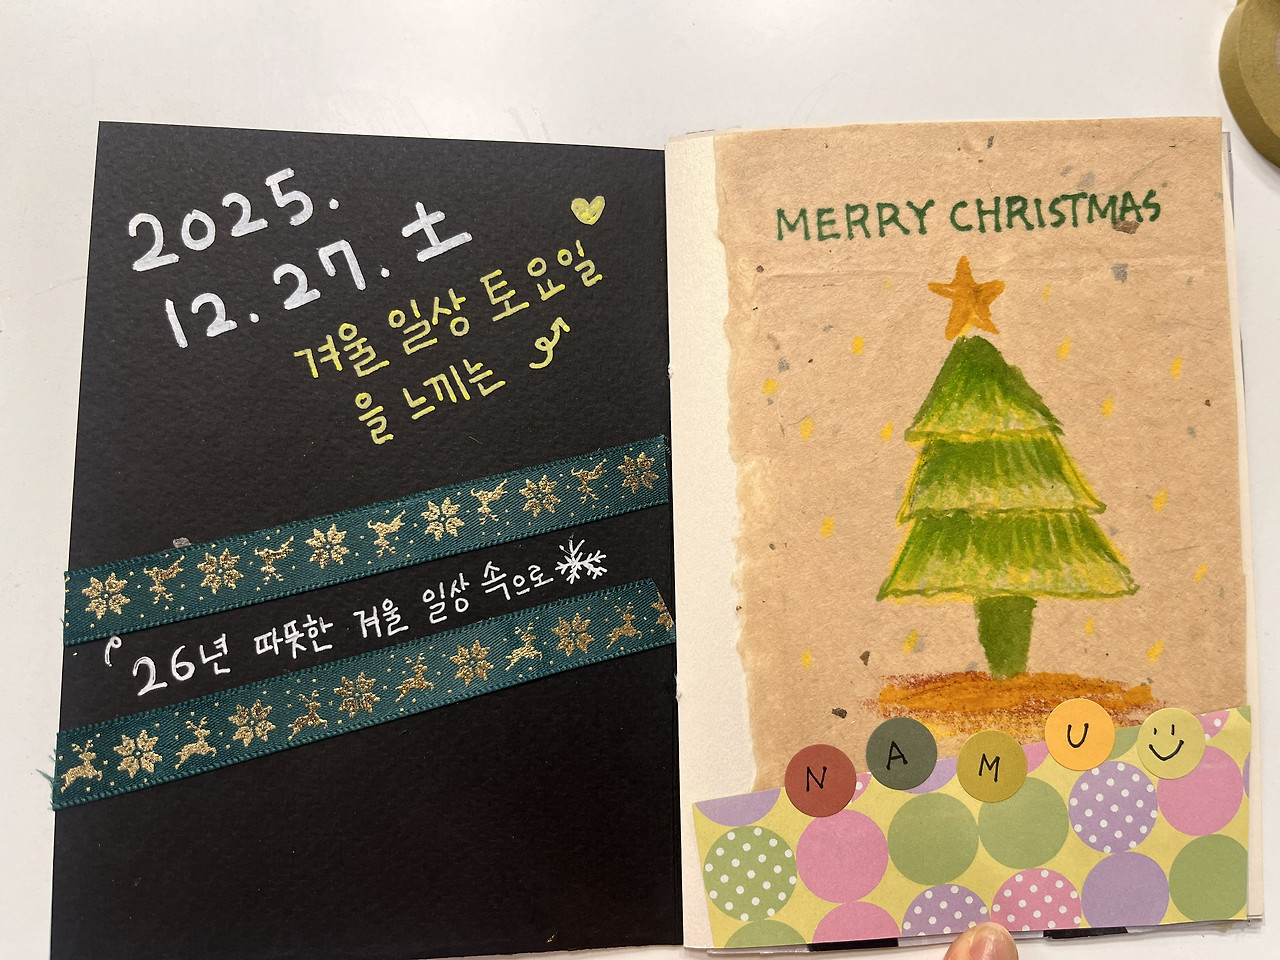 2025.
12. 27. 土
겨울 일상 토요일
을 느끼는
26년 따뜻한 겨울 일상 속으로
MERRY CHRISTMAS
N A M U